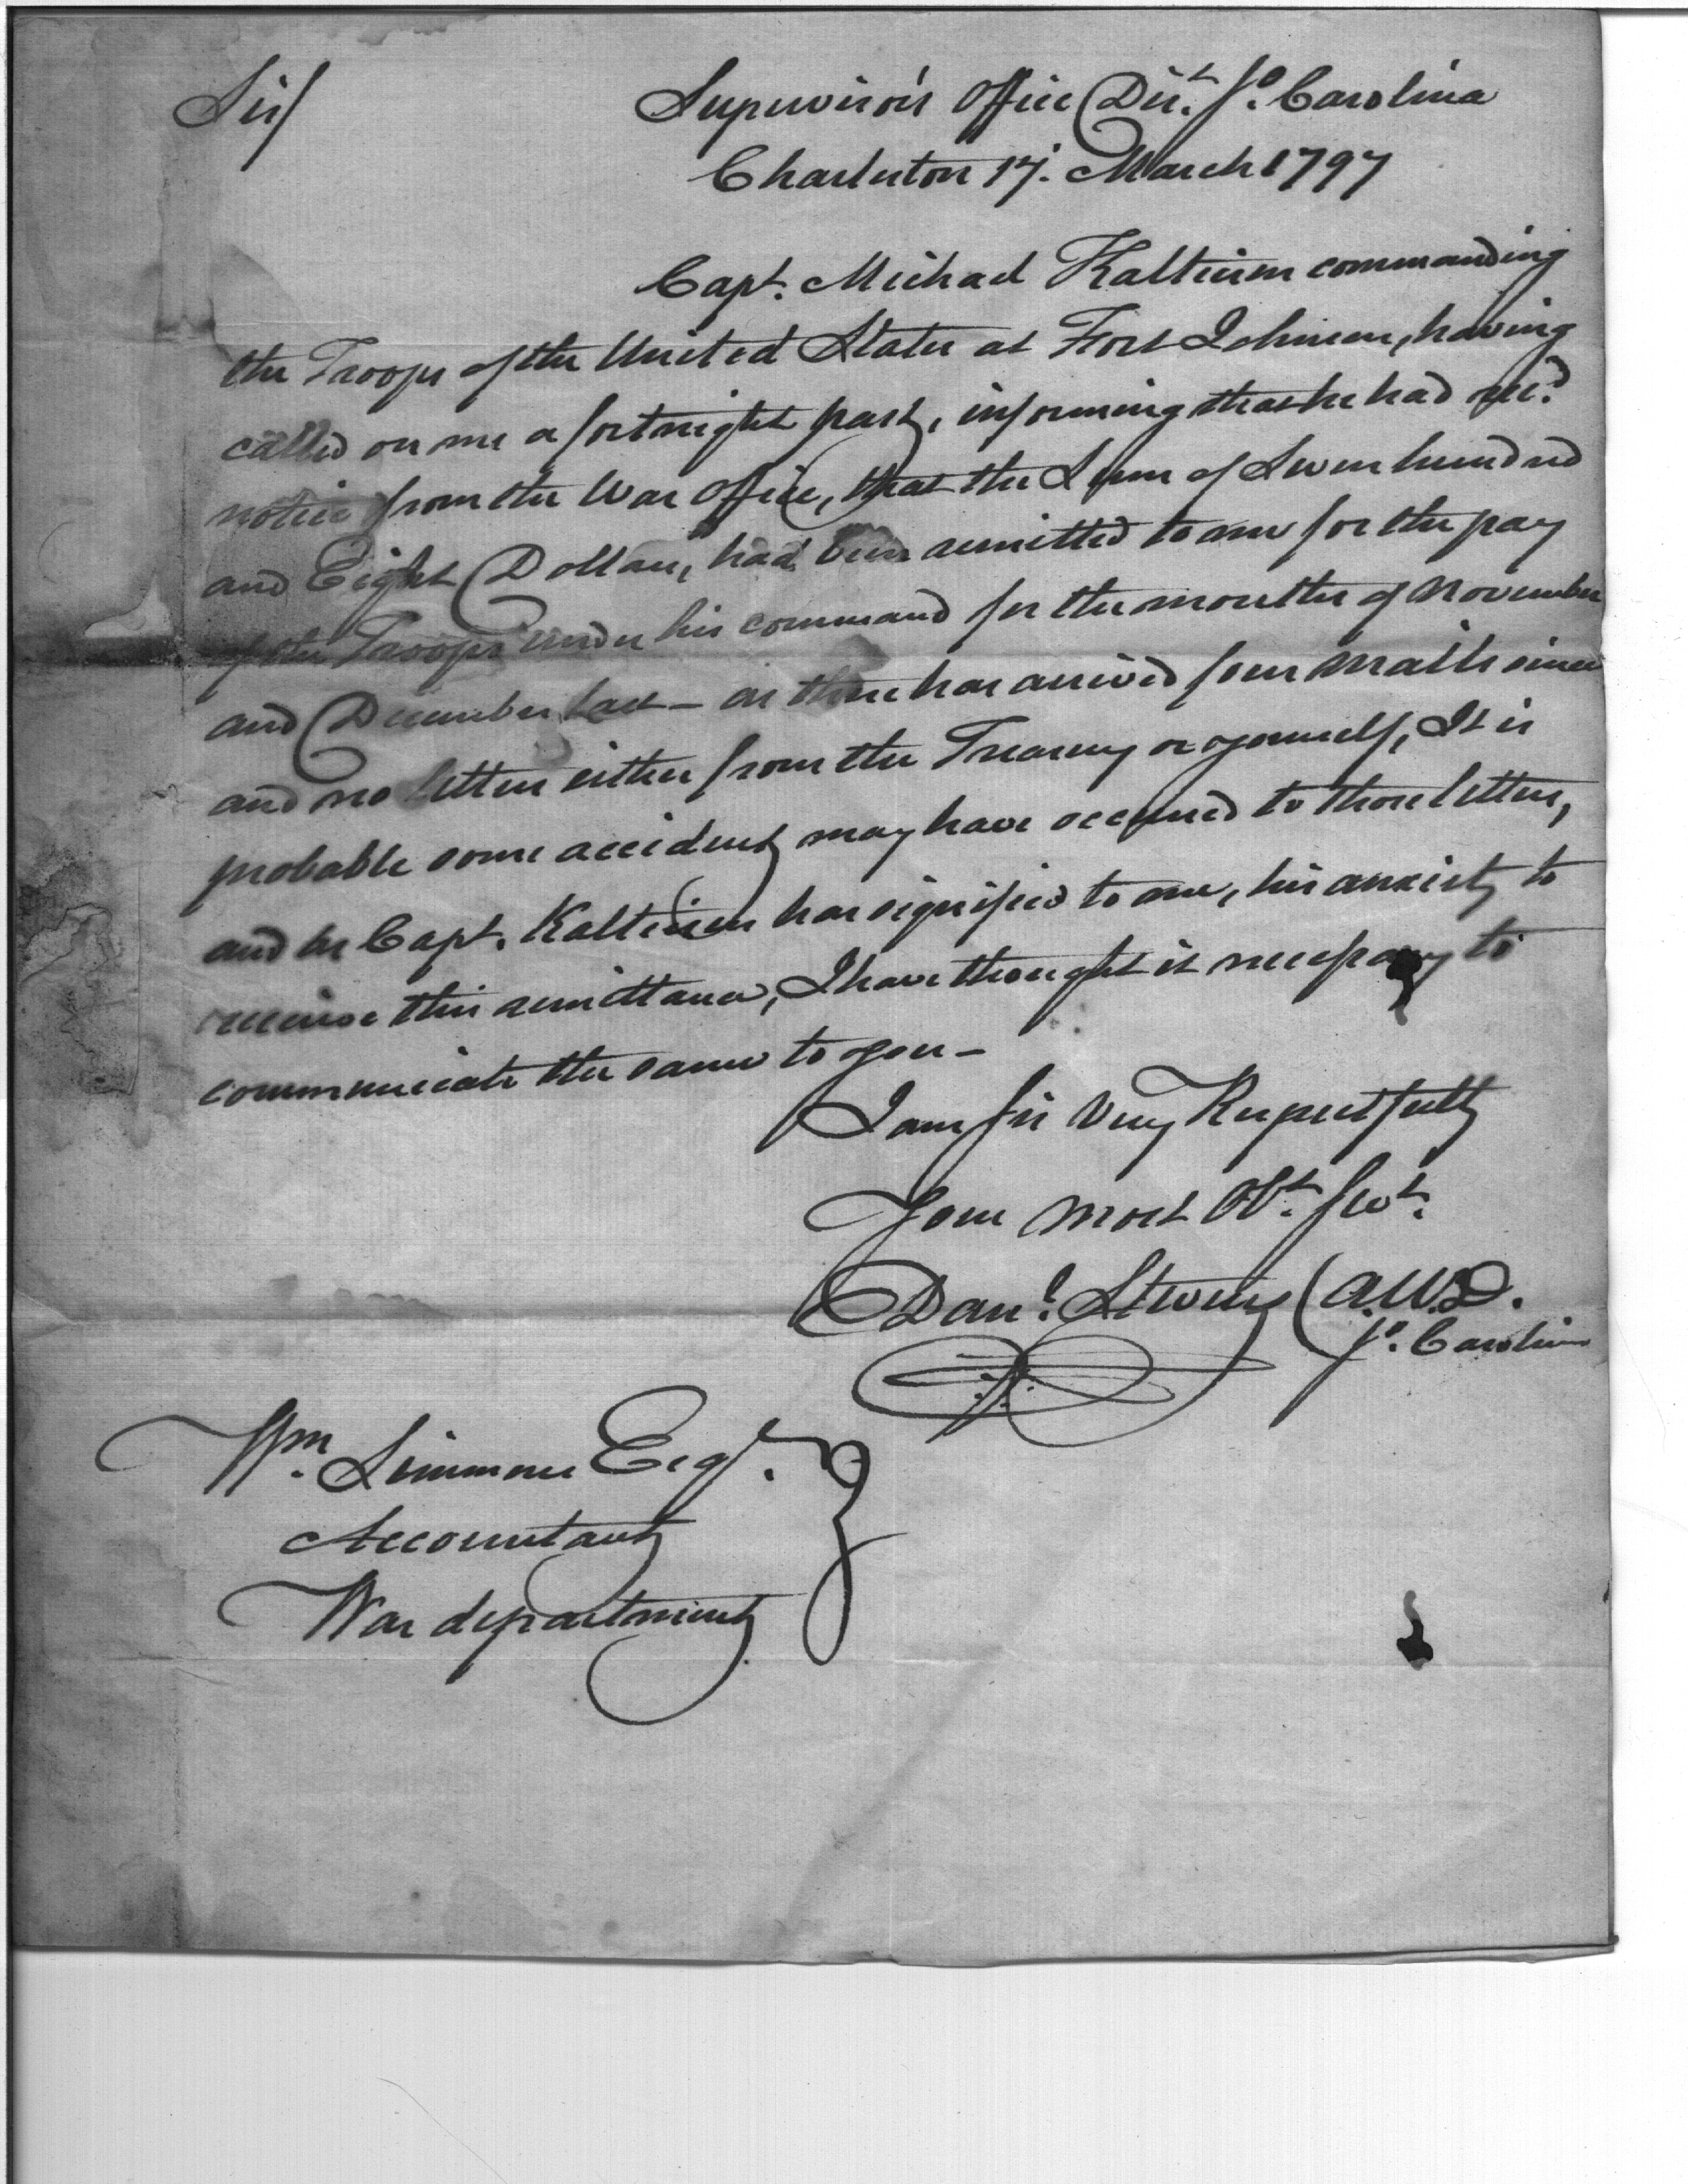 Sir/
Supervisor's Office Dist. So. Carolina
Charleston 17. March 1797
Capt. Michael Kalteisen commanding
the Troops of the United States at Fort Johnson, having
called on me a fortnight past, informing that he had recd.
notice from the War Office, that the Sum of Seven hundred
and Eight Dollars, had been remitted to me for the pay
of the Troops under his command for the months of November
and December last – as there has arrived four Mails since
and no letters either from the Treasury or yourself, It is
probable some accident may have occured to those letters,
and as Capt. Kalteisen has signified to me, his anxiety to
receive this remittance, I have thought it necessary to
communicate the same to you –
I am Sir Very Respectfully
Your Most Obt. Servt.
Danl. Stevens
So. Carolina
Wm. Simmons Esqr.
Accountant
War department